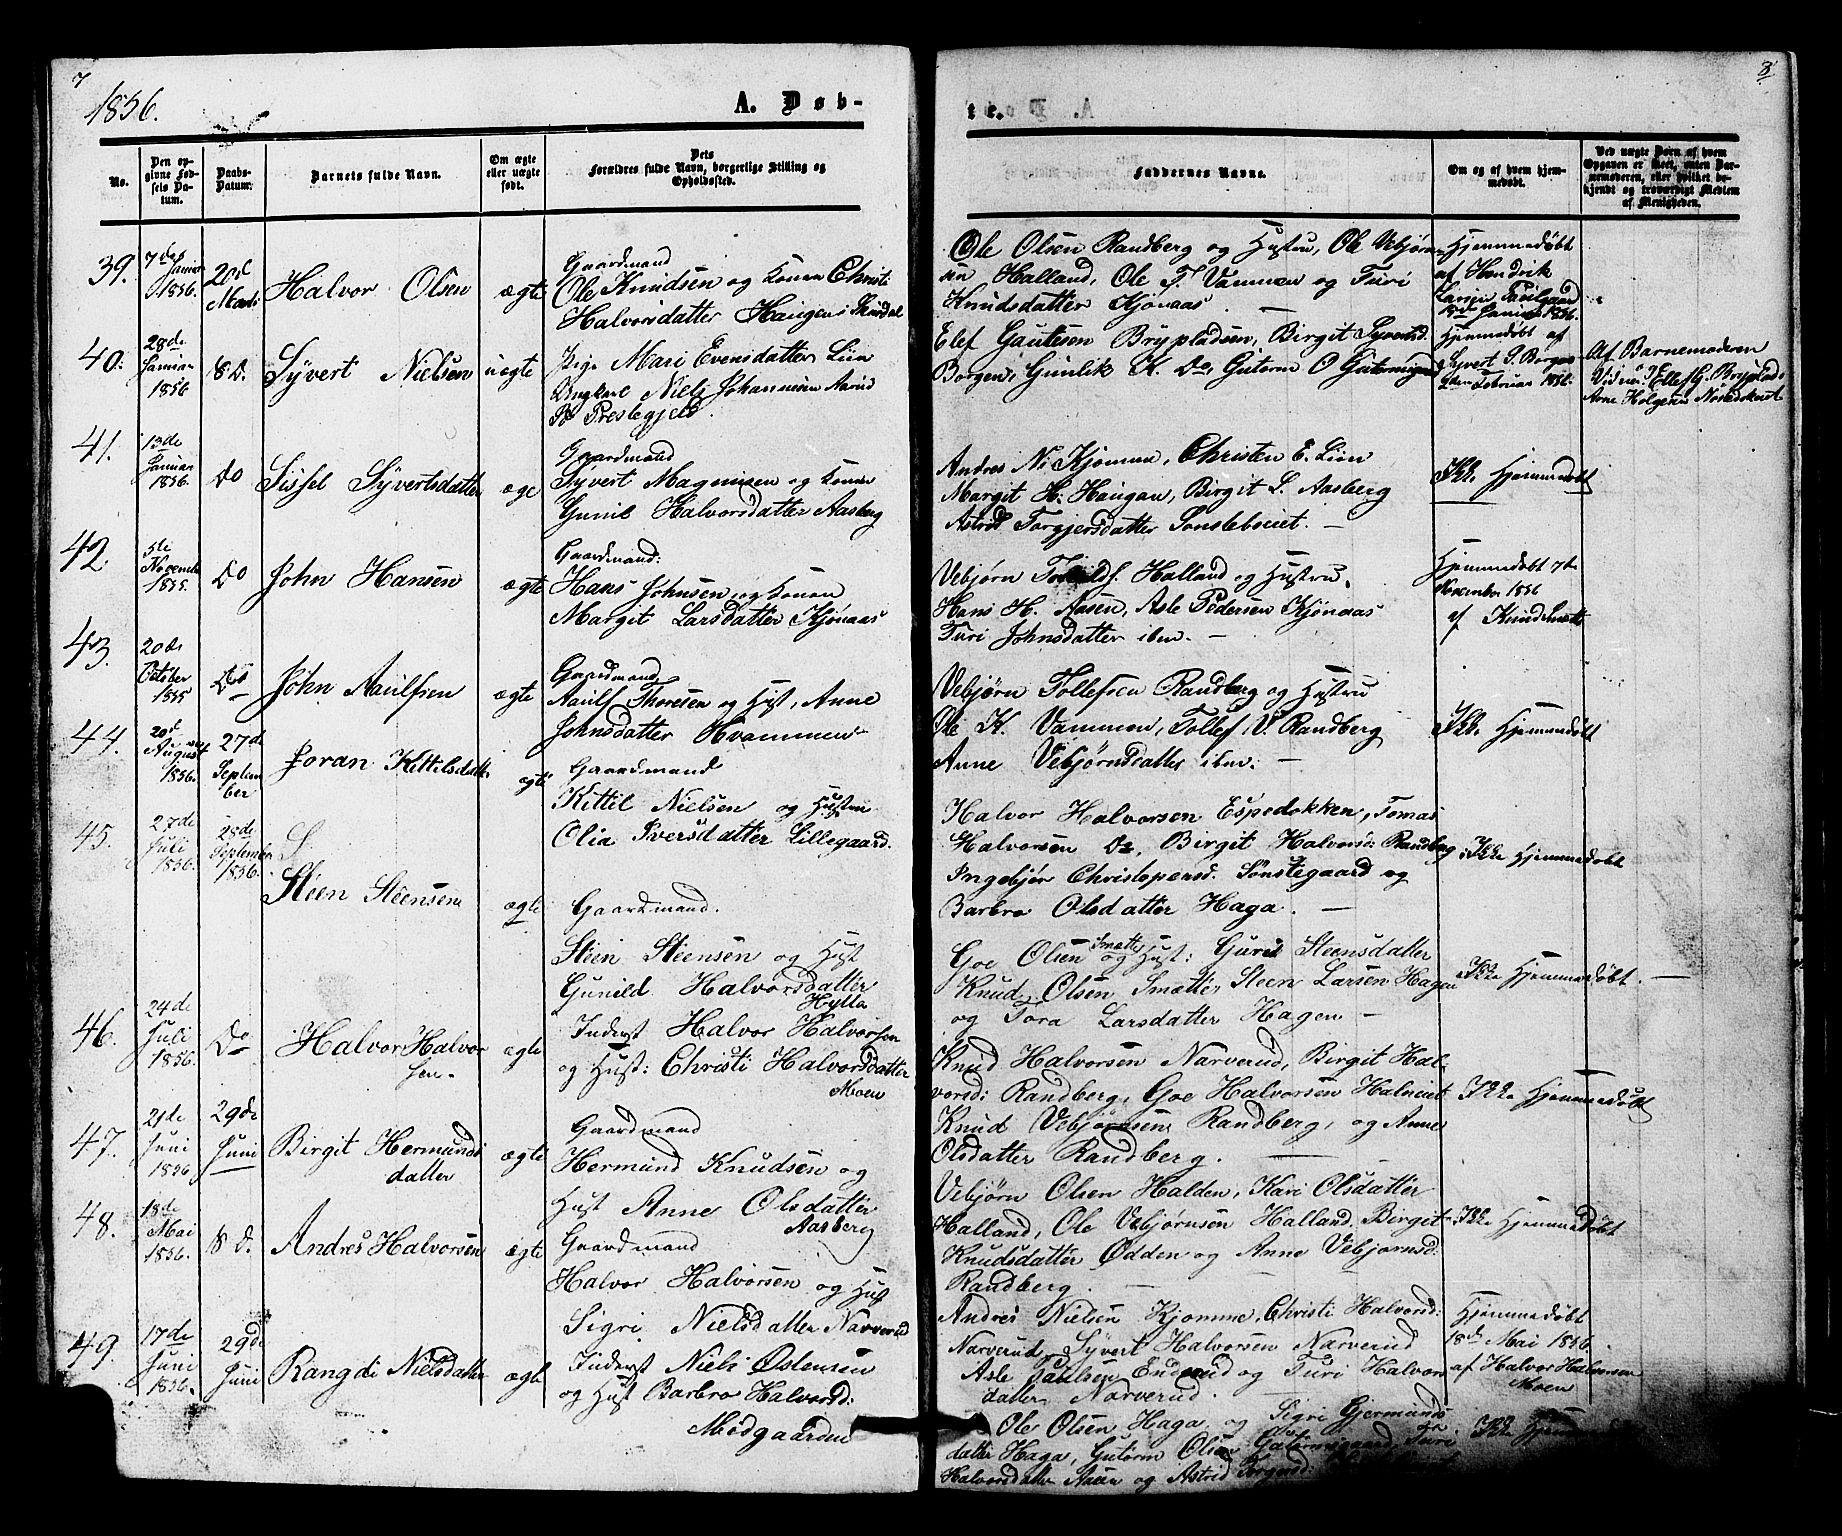 7
1856.
A. Døb-
No.
Den op-
givne Fød-
sels Da-
tum.
Daabs-
Datum.
Barnets fulde Navn.
Om ægte
eller uægte
født.
Dets
Forældres fulde Navn, borgerlige Stilling og
Opholdssted.
39.
7de
Januar
1856.
20d
Marts
Halvor Olsen
ægte
Gaardmand
Ole Knudsen og Konen Christi
Halvorsdatter Haugen i Skurdal
40.
28de
Januar
1856
8 D.
Syvert Nielsen
uægte
Pige Mari Evensdatter Lien
Ungkarl Niels Johannesen Aarud
Præstegjeld.
41.
13de
Januar
1856.
Do
Sissel Syvertsdatter
ægte
Gaardmand
Syvert Magnusen og Konen
Gunil Halvorsdatter Aasberg
42.
5te
Novemb
1855.
Do
John Hansen
ægte
Gaardmand:
Hans Johnsen og Konen
Margit Larsdatter Kjønaas
43.
20de
October
1855
Do
John Aaulfsen
ægte
Gaardmand
Aaulf Thoresen og Hust, Anne
Johnsdatter Hvammen
44.
20d
August
1856.
27de
Septem
ber
Joran Kittilsdatt
ægte
Gaardmand
Kittil Nielsen og Hustru
Olia Iversdatter Lillegaard.
45.
27de
Juli
1856.
28de
September
1856.
Steen Steensen
ægte
Gaardmand.
Steen Steensen og Hust
Gunild Halvorsdatter
Hylla
46.
24de
Juli
1856.
Do
Halvor Halvor
sen.
ægte
Inderst Halvor Halvorsen
og Hust: Christi Halvorsdatter
Moen
47.
21de
Juni
1856.
29de
Juni
Birgit Hermunds
datter
ægte
Gaardmand
Hermund Knudsen og
Hust Anne Olsdatter
Aasberg
48.
18de
Mai
1856.
8 d.
Andres Halvorsen
ægte
Gaardmand
Halvor Halvorsen og Hust
Sigri Nielsdatter Narverud
49.
17de
Juni
1856.
29d
Juni
Rangdi Nielsdatter
ægte
Inderst Niels Østensen
og Hust Barbro Halvorsd:
Medgaarden
8
te.
Faddernes Navne.
Om og af hvem hjem-
medøbt.
Ved uægte Børn af hvem
Opgaven er skeet, enten Bar-
nemoderen, eller hvilket be-
kjendt og troværdigt Medlem
af Menigheden.
Ole Olsen Randberg og Hustru, Ole Vebjørn
sen Halland, Ole T. Vammen og Turi
Knudsdatter Kjønaas
Hjemmedøbt
af Hendrik
Larsen
Januar 1856.
Elef Gautesen Brypladsen, Birgit Syvertsd.
Borgen, Gunlik K. Do, Gutorm O Gutormsgaard
Hjemmedøbt af
Syvert S. Borgen
Februar 1856.
Af Barnemoderen
Vidner: Ellef G. Bryplads
Arne Helgesen
Andres N. Kjomme, Christen E. Lien
Margit H. Haugen, Birgit L. Aasberg
Astrid Torgjersdatter Sønstebøiet.
Ikke Hjemmedøbt
Vebjørn Halland og Hustru.
Hans H. Aasen, Asle Pedersen Kjønaas
Turi Johnsdatter ibm. -
Hjemmedøbt 7de
November 1856
af
Vebjørn Tollefsen Randberg og Hustru
Ole K. Vammen, Tollef V. Randberg
Anne Vebjørnsdatter ibm:
Ikke Hjemmedøbt
Halvor Halvorsen Espedokken, Tomas
Halvorsen Do, Birgit Halvorsd: Randberg
Ingebjør Christophersd. Sønstegaard og
Barbro Olsdatter Haga.
Ikke Hjemmedøbt
Goe Olsen Smætte og Hust: Guri Steensdatter
Knud Olsen Smætte, Steen Larsen Hagen
og Tora Larsdatter Hagen
Ikke Hjemmedøbt.
Knud Halvorsen Narverud, Birgit Hal-
vorsd: Randberg, Goe Halvorsen
Knud Vebjørnsen Randberg, og Anne
Olsdatter Randberg.
Ikke Hjemmedøbt
Vebjørn Olsen Halden, Kari Olsdatter
Halland, Ole Vebjørnsen Halland, Birgit
Knudsdatter Ødden og Anne Vebjørnsd:
Randberg.
Ikke Hjemmedøbt
Andres Nielsen Kjomme, Christi Halvorsd:
Narverud, Syvert Halvorsen Narverud
Asle Paulsen Enderud og Turi Halvors
datter Narverud.
Hjemmedøbt
18de Mai 1856.
af Halvor Halvorsen
Moen
Ole Olsen Haga, og Sigri Gjermunds
datter Haga, Gutorm Olsen Gutormsgaard, Turi
Halvorsdatter Aasen og Astrid Torgersd:
Ikke Hjemmedøbt